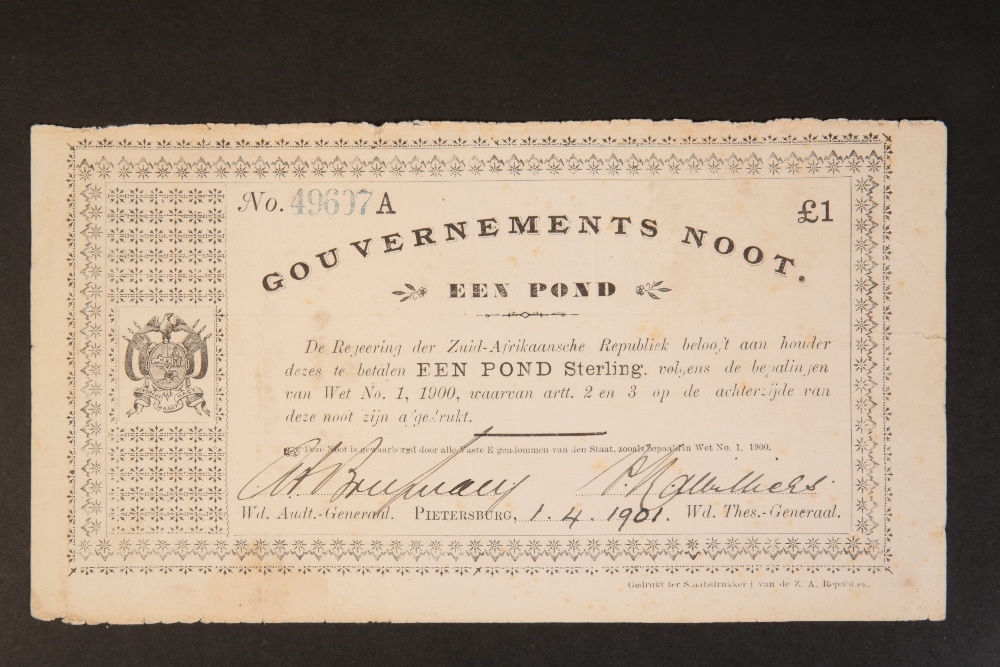 No. 49697 A £1
GOUVERNEMENTS NOOT.
EEN POND
De Regeering der Zuid-Afrikaansche Republiek belooft aan houder
dezes te betalen EEN POND Sterling. volgens de bepalingen
van Wet No. 1, 1900, waarvan artt. 2 en 3 op de achterzijde van
deze noot zijn afgedrukt.
Deze Noot is gewaarborgd door alle Vaste Eigendommen van den Staat, zooals bepaald in Wet No. 1. 1900.
Wd. Audt.-Generaal. PIETERSBURG, 1.4.1901. Wd. Thes.-Generaal.
Gedrukt ter Staatsdrukkerij van de Z. A. Republiek.